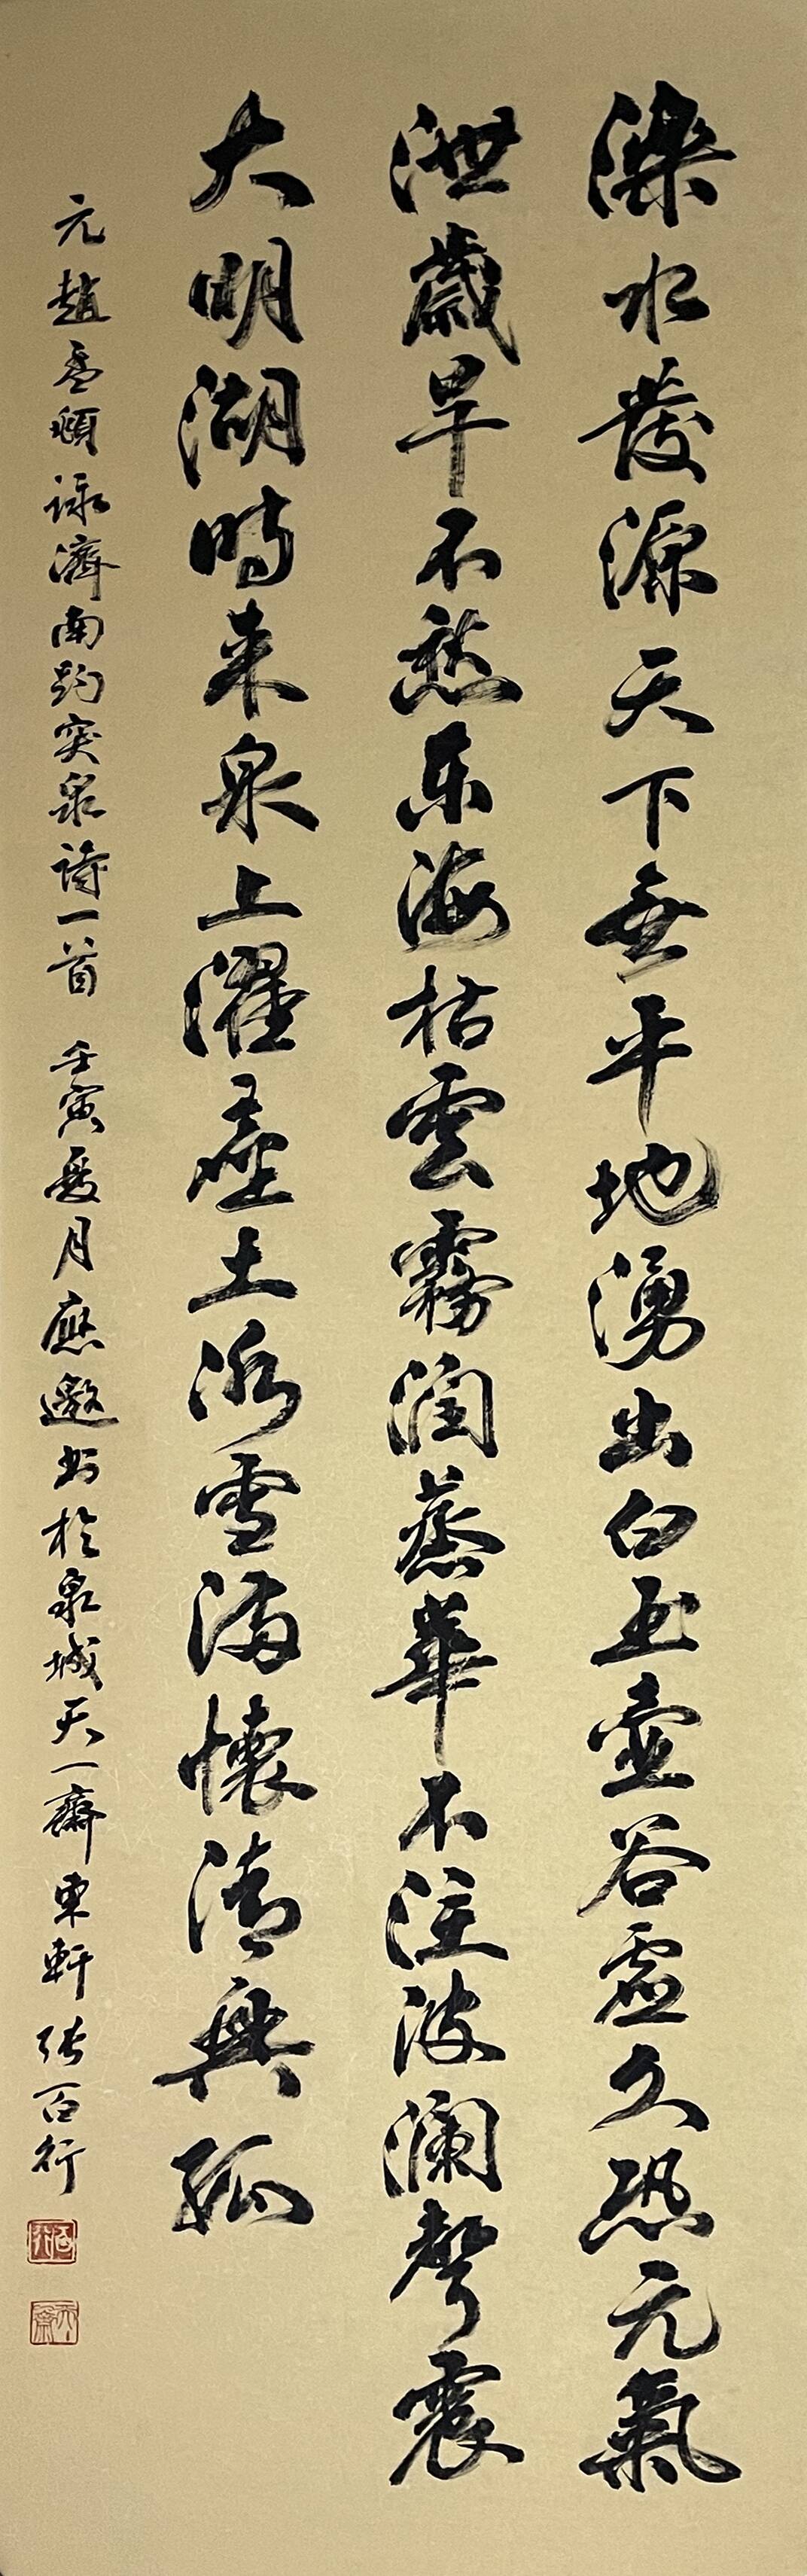 濼水發源天下無平地湧出白玉壺谷虛久恐元氣
泄歲旱不愁东海枯雲霧潤蒸華不注波瀾聲震
大明湖時来泉上濯塵土冰雪滿懷清興孤
元趙孟頫詠濟南趵突泉詩一首 壬寅夏月應邀书於泉城天一齋東軒張百行